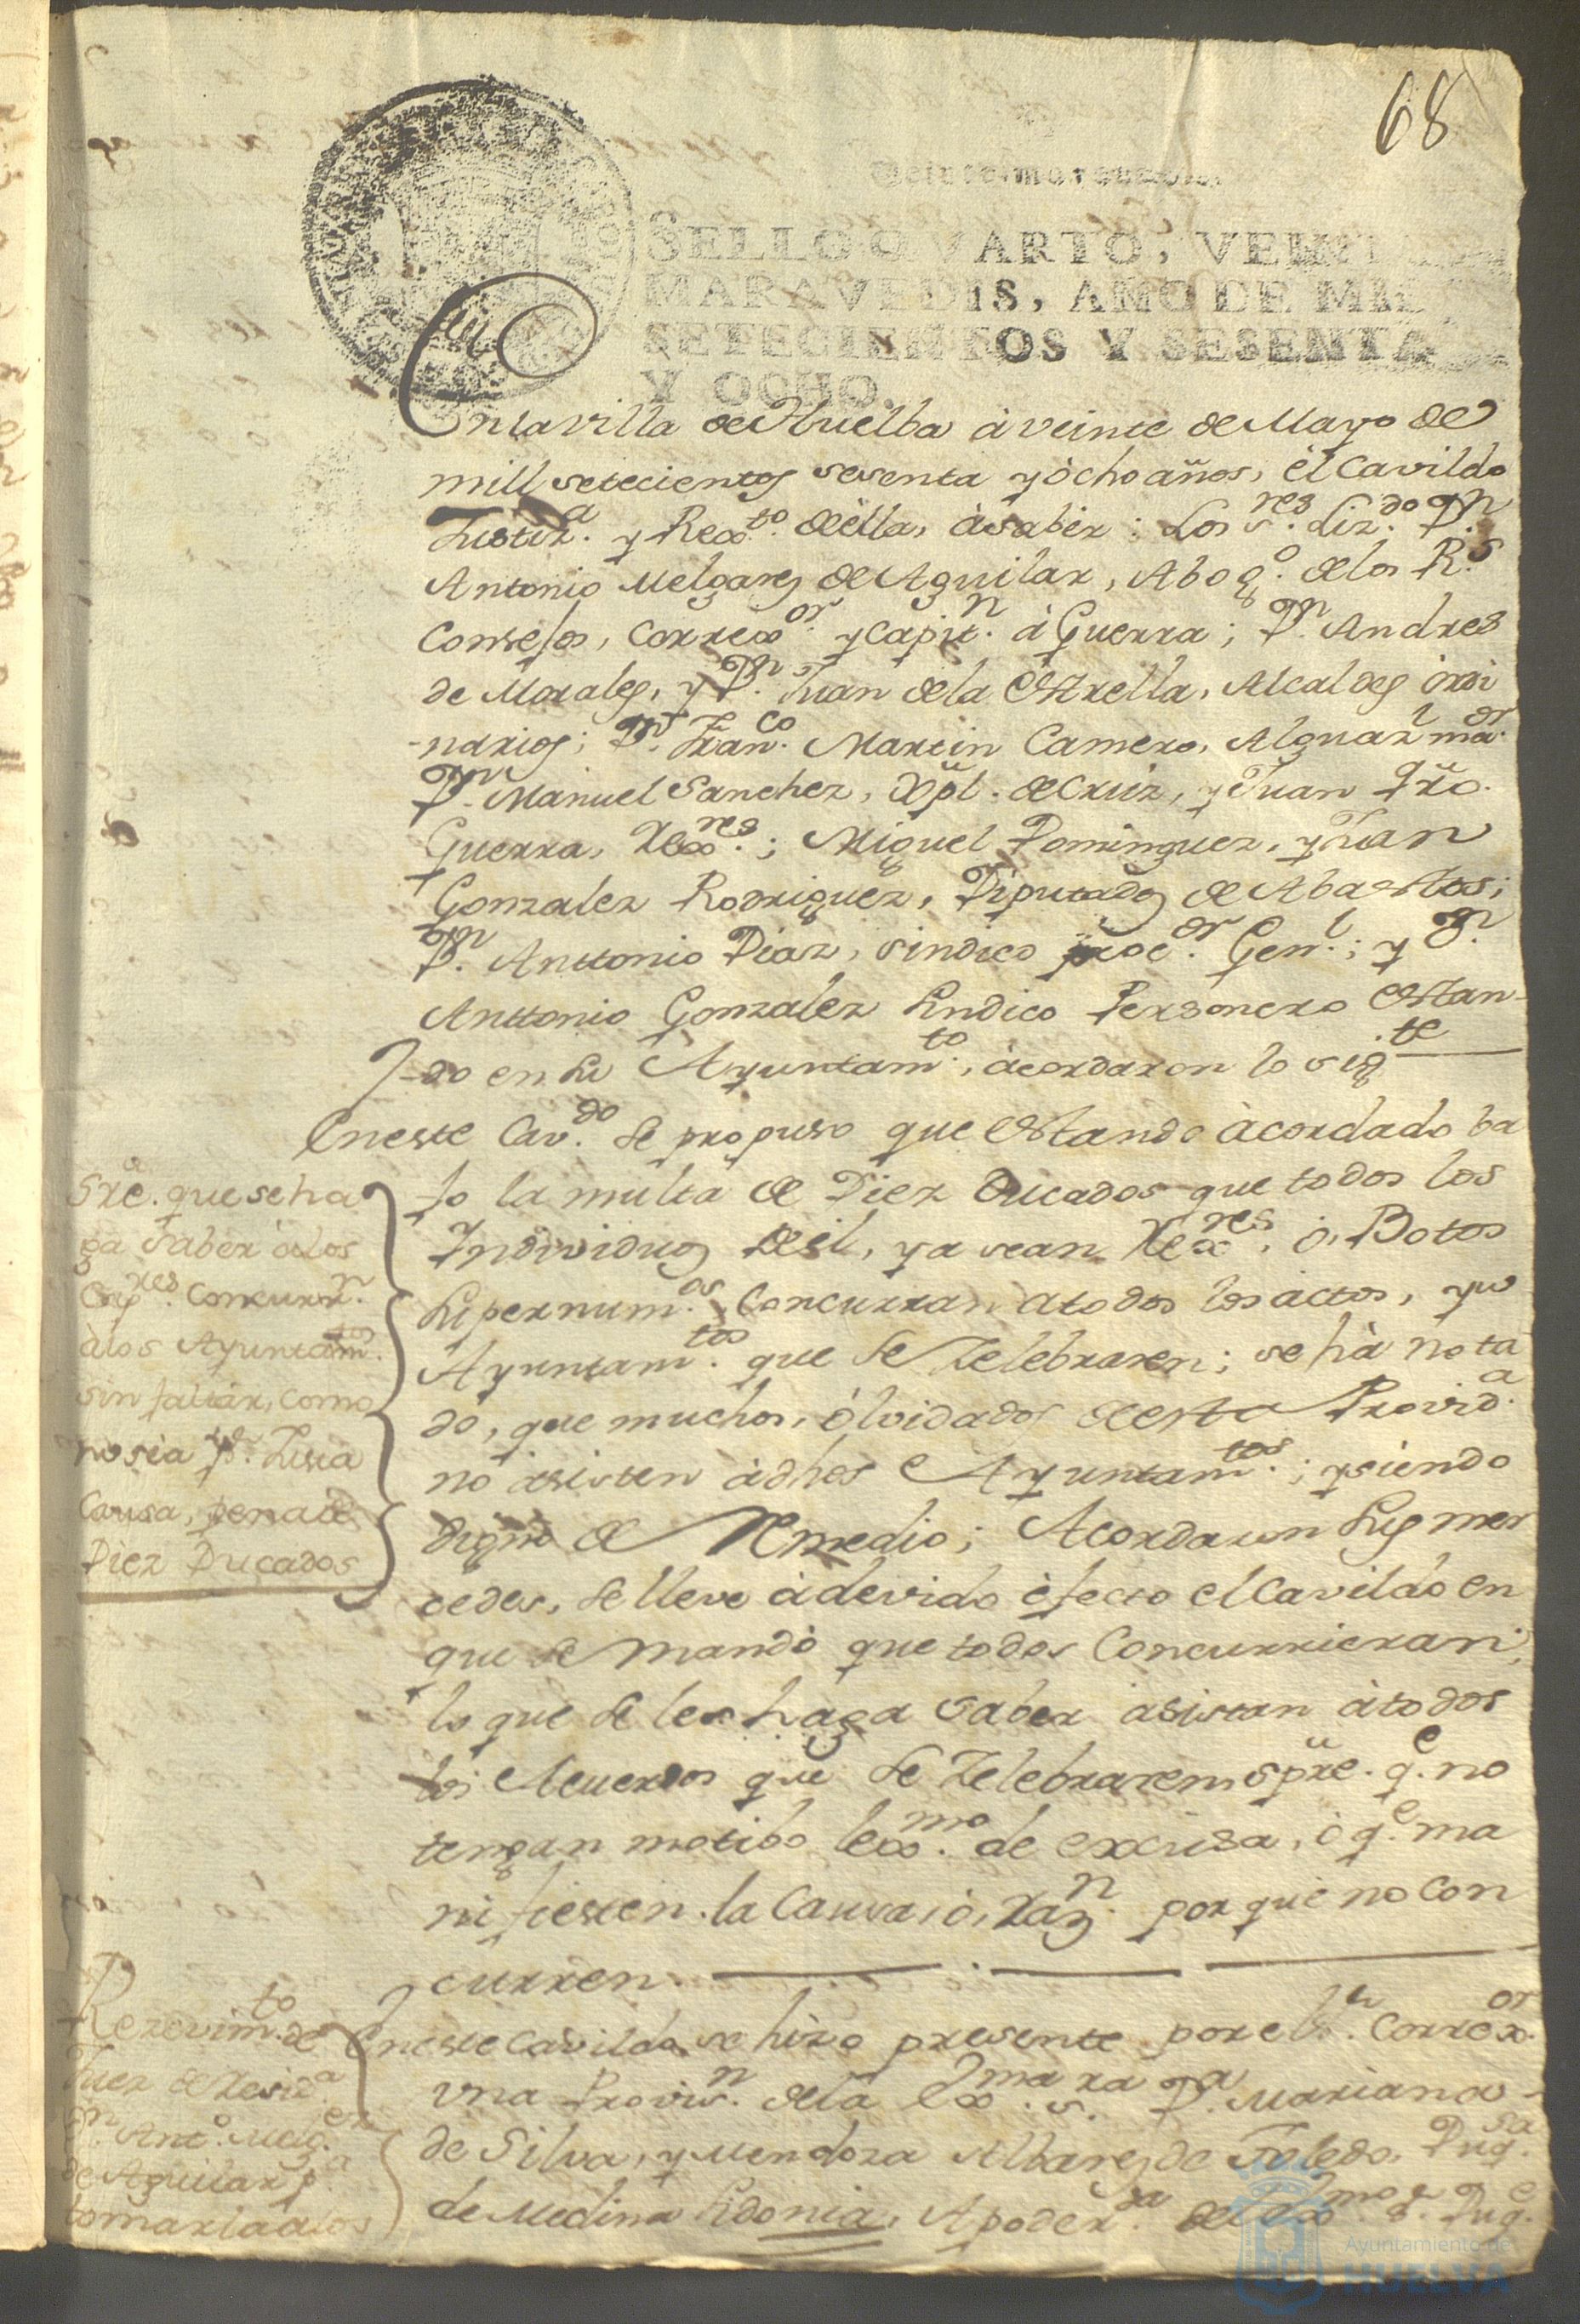 68
SELLO QVARTO, VEINTE
MARAVEDIS, AÑO DE MIL
SETECIENTOS Y SESENTA
Y OCHO.
En la villa de Huelba à veinte de Mayo de
mill setecientos sesenta y òcho años, èl Cavildo
Justiz.ª y Rex.to de ella, à saber: Los S.res Liz.do D.n
Antonio Melgarej de Aguilar, Abog.o de los R.s
Consejos, Correx.or y Capit.n à Guerra; D.n Andres
de Morales, y D.n Juan de la Estrella, Alcaldes òrdi
-narios; D.n Fran.co Martin Camero, Alguaz.l ma.or
D.n Manuel Sanchez, Xptl. de Cruz, y Juan
Guerra, Rex.res; Miguel Dominguez, y Juan
Gonzalez Rodriguez, Diputados de Abastos;
D.n Anttonio Diaz, Sindico proc.or Gen.l; y D.n
Anttonio Gonzalez Sindico Personero Estan-
-do en su Ayuntam.to, àcordaron lo sig.te
En este Cav.do se propuso que estando àcordado ba
jo la multa de Diez Ducados que todos los
Individuos de èl, ya sean Rex.res, ò Botos
Supernum.os, Concurran a todos los actos, y
Ayuntam.tos que se Zelebraren; se hà nota
do, que muchos, òlvidados de esta Provid.ª
no asisten à dhos Ayuntam.tos; y siendo
digno de Remedio; Acordaron sus mer
cedes, se lleve à devido èfecto el Cavildo en
que se mandò que todos Concurrieran;
lo que se les haga saber asistan à todos
los Acuerdos que se Zelebraren spre. q.e no
tengan motibo lex.mo de excusa, ò q.e ma
nifiesten la Causa, ò Raz.n por què no con
curren.
Sre. que se ha
ga saber à los
Cap.res Concurr.n
à los Ayuntam.tos
sin faltar, como
no sea p.r Justa
Causa, pena de
Diez Ducados
En este Cavildo, se hizo presente por el S.r Correx.or
Una Provis.n de la Ex.ma S.ra D.ª Mariana
de Silva, y Mendoza Albarez de Toledo, Duq.sa
de Medina Sidonia, Apoder.da del Ex.mo S.r Duq.e
Rezevim.to de
Juez de Resid.ª
D.n Ant.o Melg.ez
de Aguilar p.ª
tomarla a los
Ayuntamiento de
HUELVA